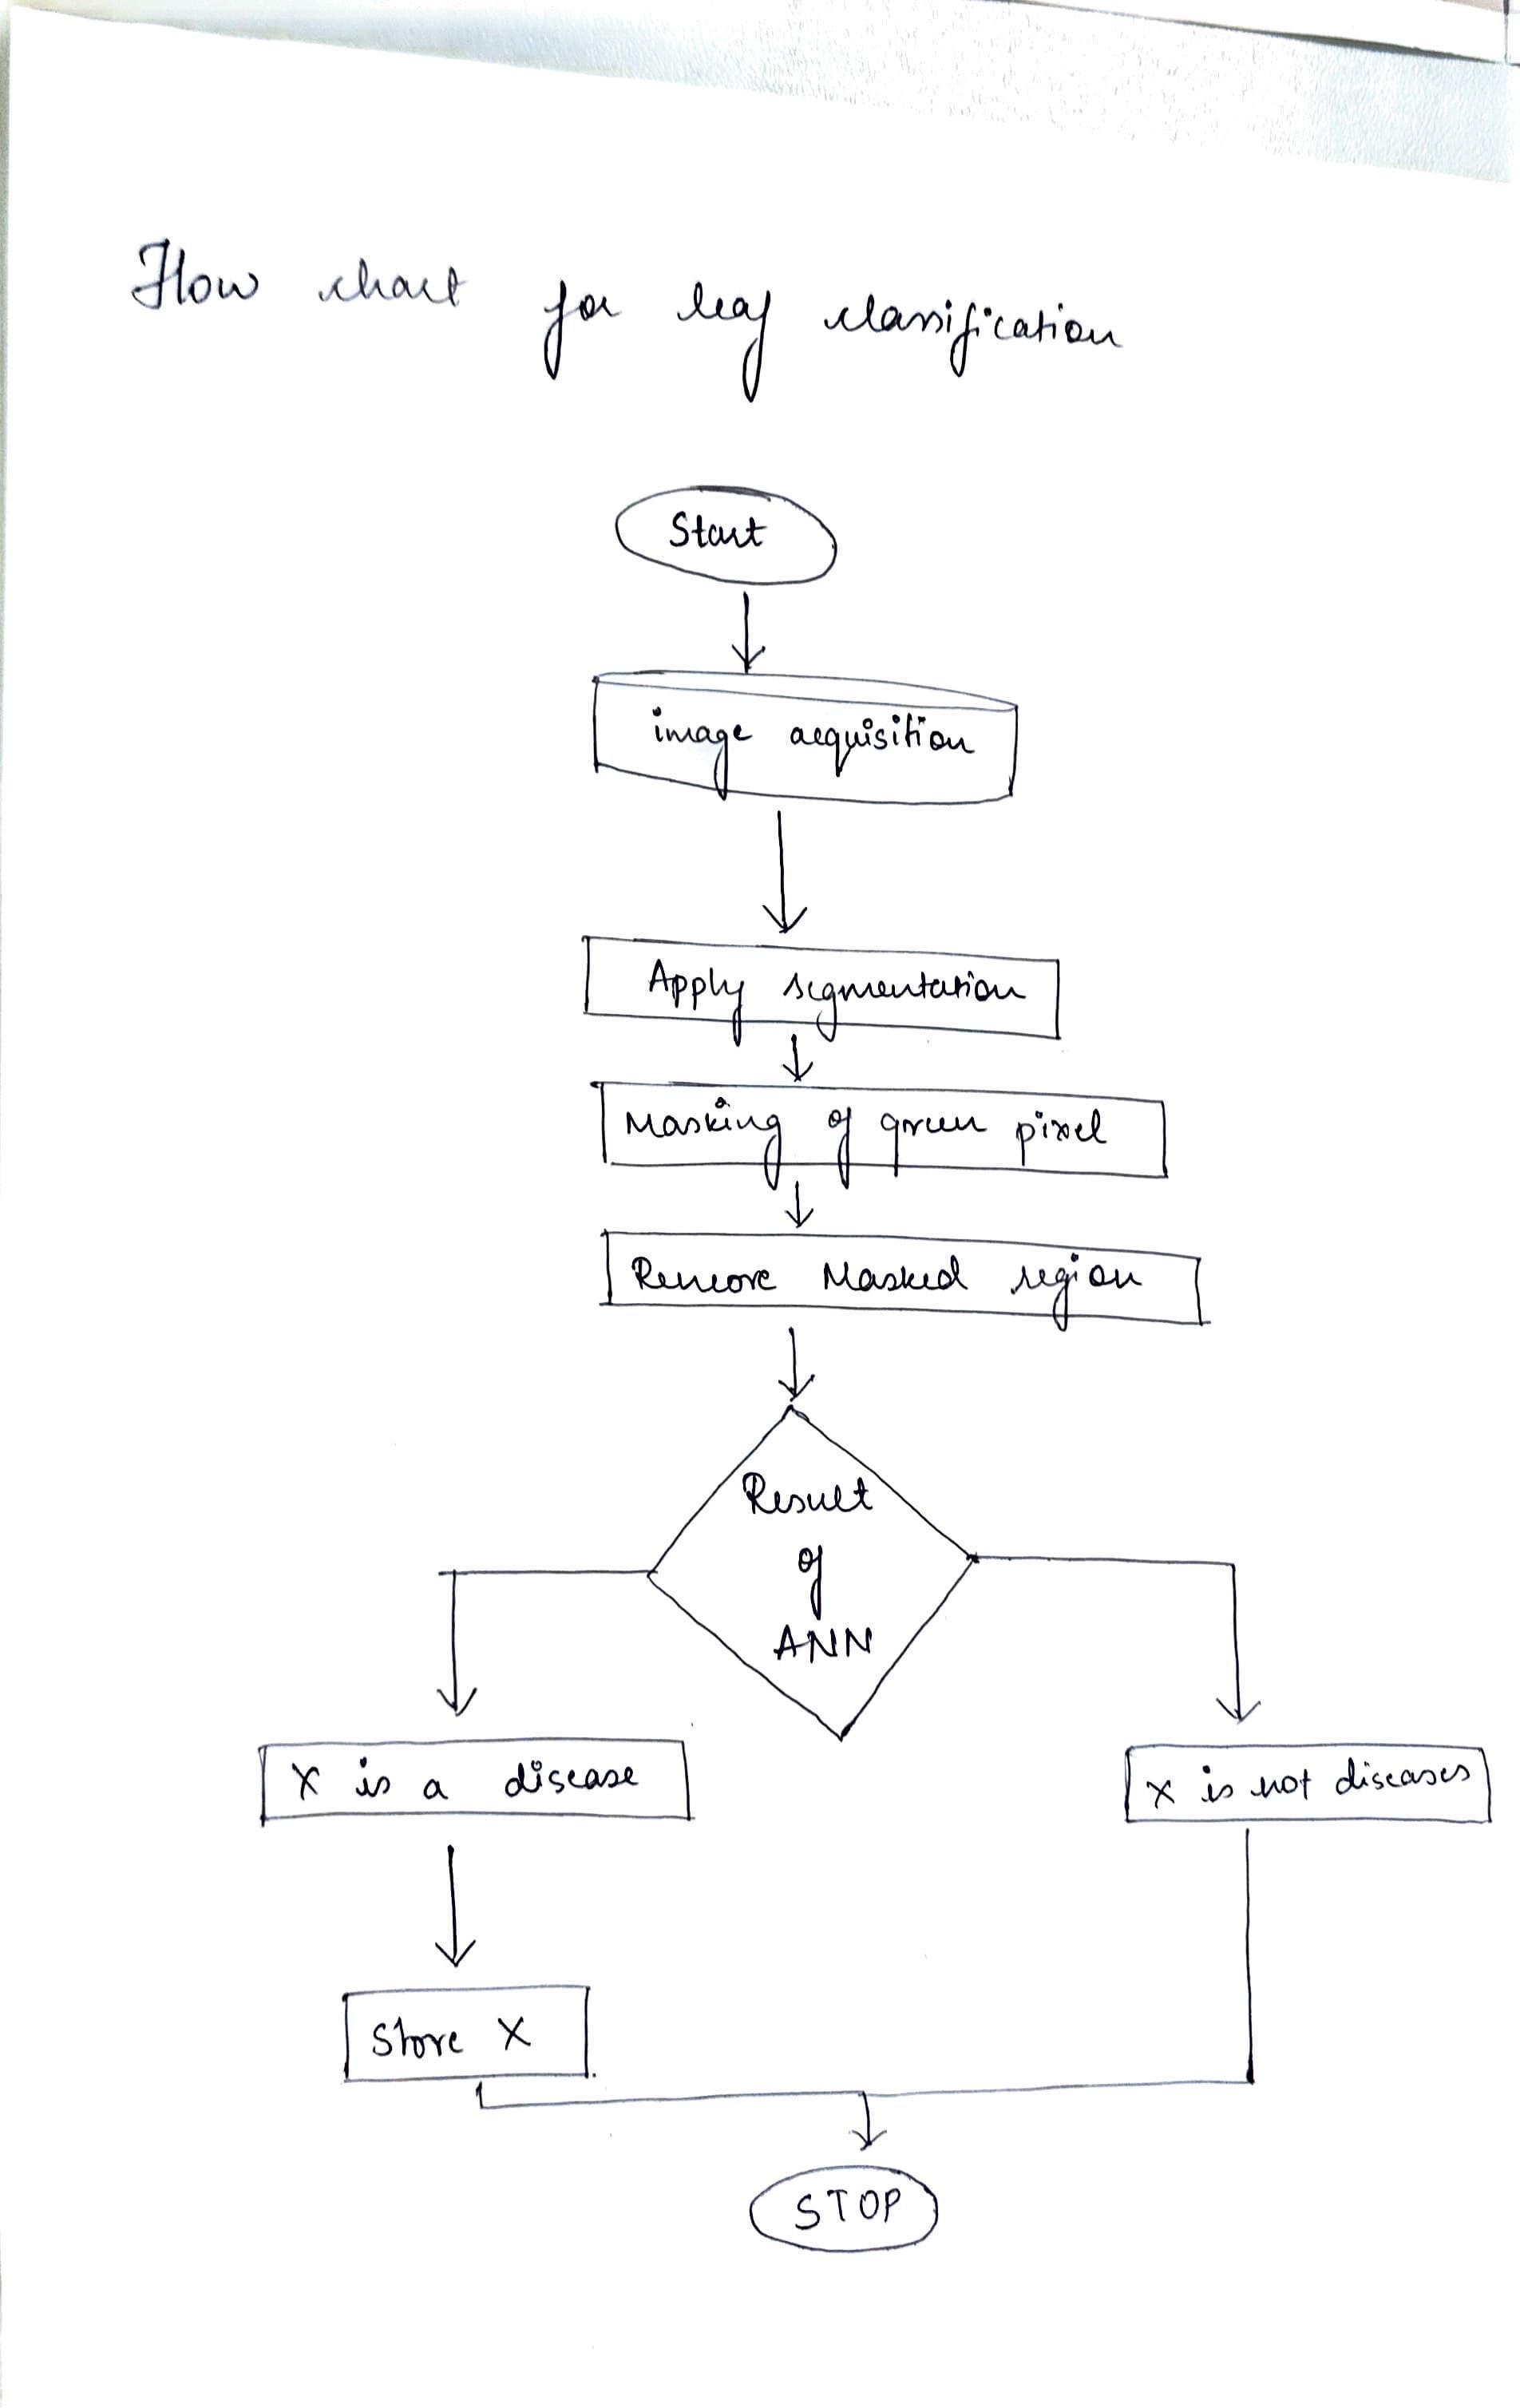 Flow chart for leaf classification
Start
image acquisition
Apply segmentation
Masking of green pixel
Remove Masked region
Result
of
ANN
X is a disease
X is not diseases
Store X
STOP